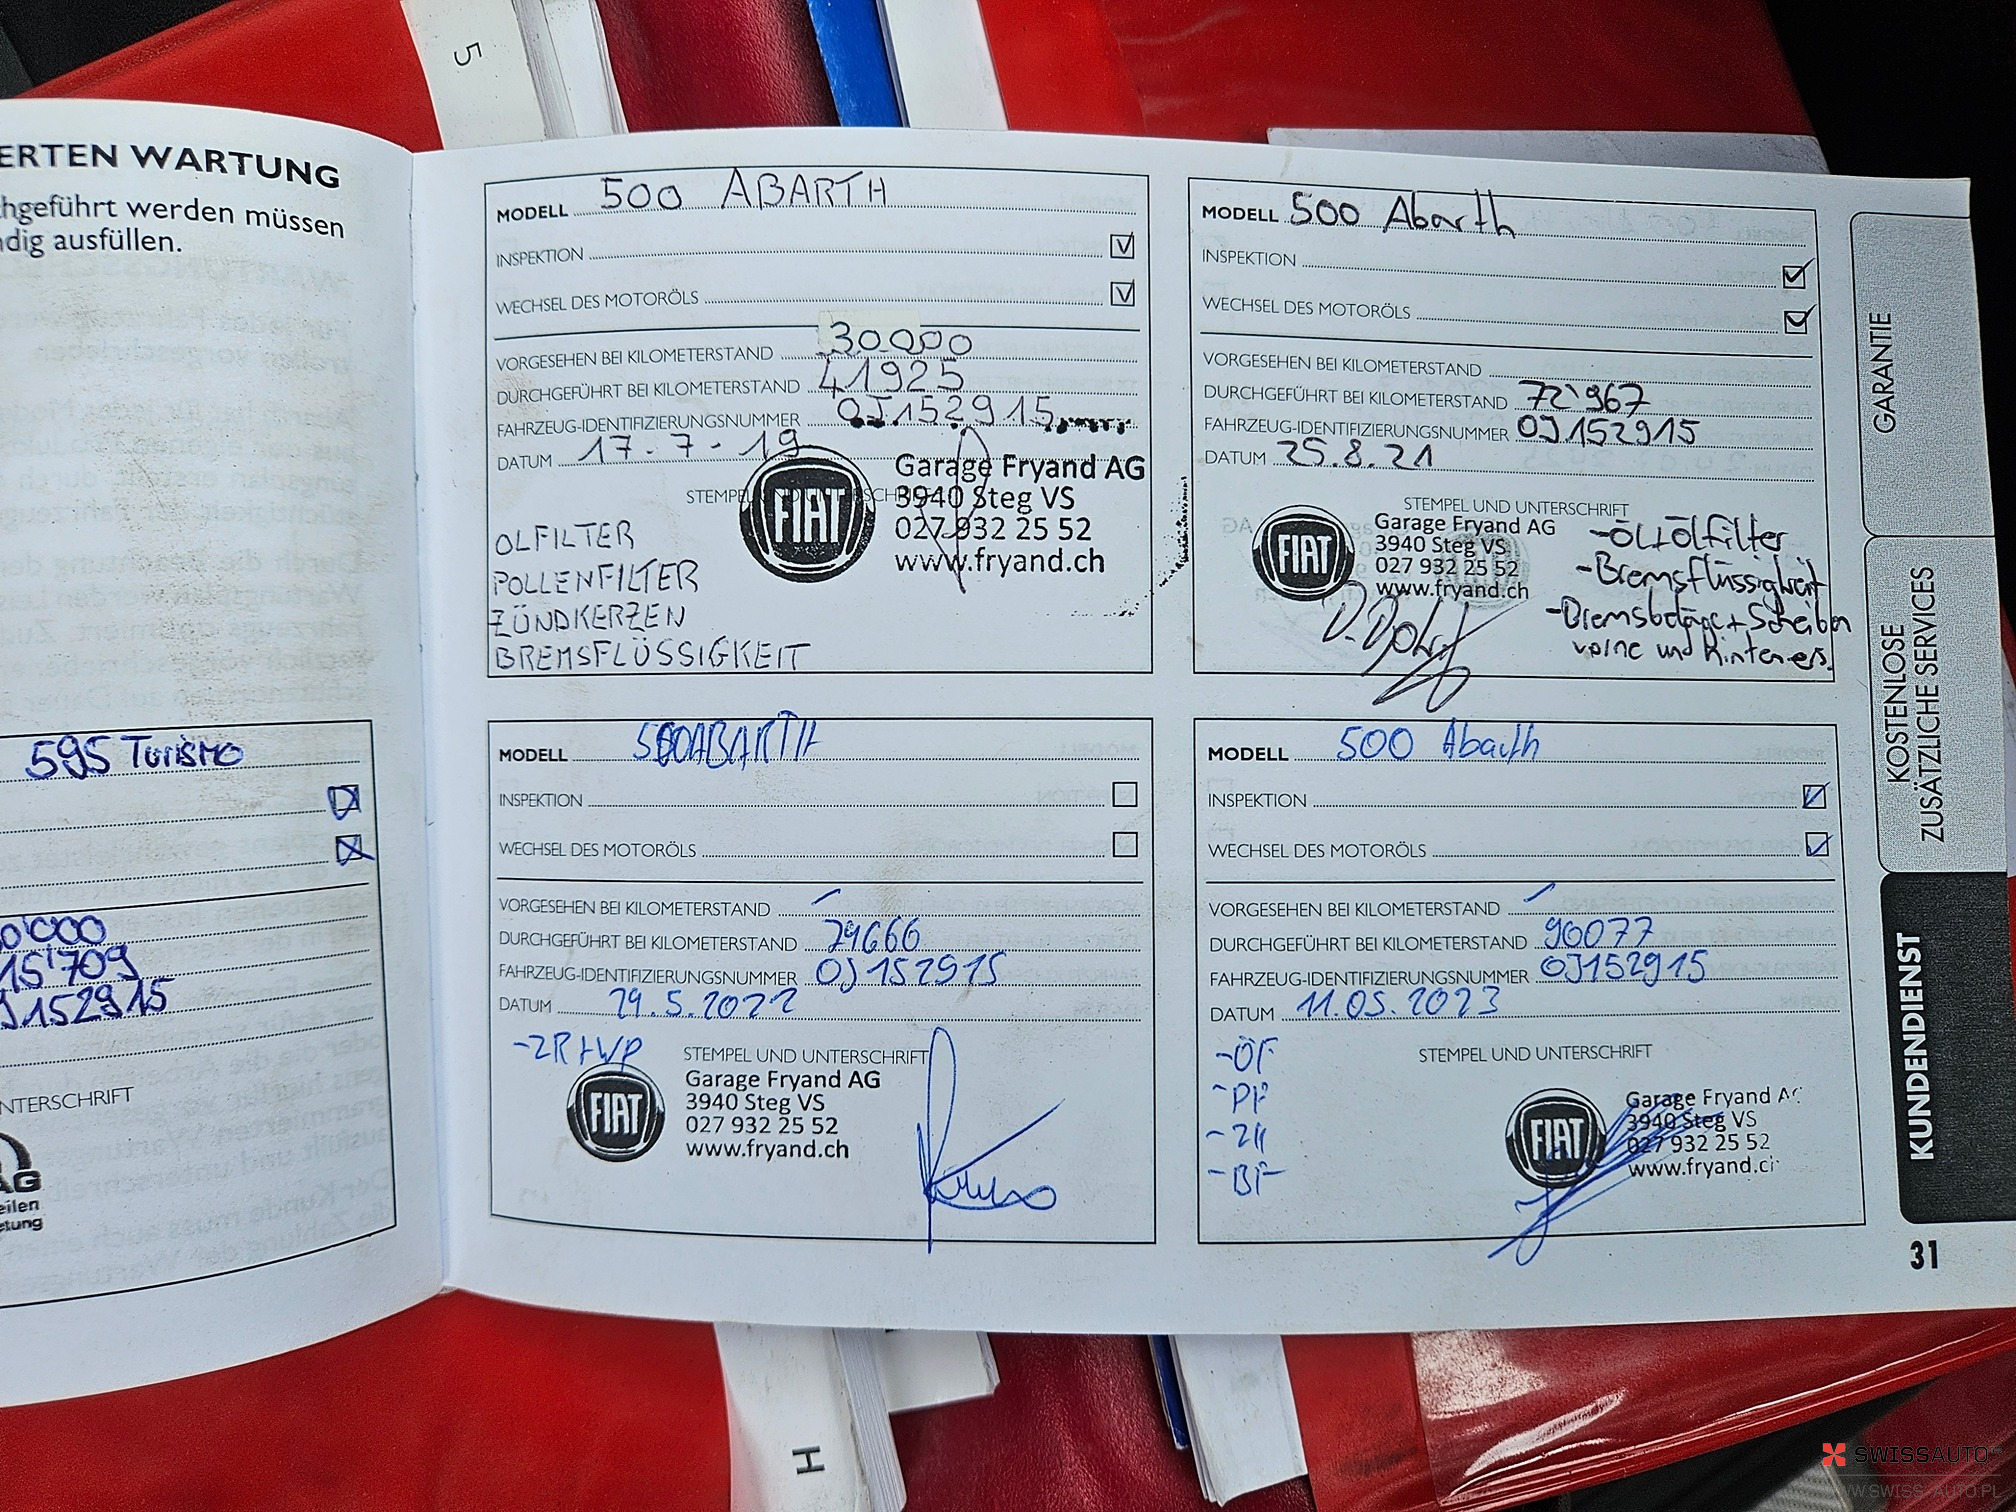 5
ERTEN WARTUNG
chgeführt werden müssen
ndig ausfüllen.
595 Turismo
0'000
15'709
J152915
NTERSCHRIFT
AG
eilen
etung
MODELL 500 ABARTH
INSPEKTION
WECHSEL DES MOTORÖLS
VORGESEHEN BEI KILOMETERSTAND 30000
DURCHGEFÜHRT BEI KILOMETERSTAND 41925
FAHRZEUG-IDENTIFIZIERUNGSNUMMER 0J152915
DATUM 17.7-19
STEMPEL UND UNTERSCHRIFT
FIAT
Garage Fryand AG
3940 Steg VS
027 932 25 52
www.fryand.ch
OLFILTER
POLLENFILTER
ZÜNDKERZEN
BREMSFLÜSSIGKEIT
MODELL 500 Abarth
INSPEKTION
WECHSEL DES MOTORÖLS
VORGESEHEN BEI KILOMETERSTAND
DURCHGEFÜHRT BEI KILOMETERSTAND 72'967
FAHRZEUG-IDENTIFIZIERUNGSNUMMER 0J152915
DATUM 25.8.21
STEMPEL UND UNTERSCHRIFT
FIAT
Garage Fryand AG
3940 Steg VS
027 932 25 52
www.fryand.ch
-Öl+Ölfilter
-Bremsflüssigkeit
-Bremsbeläge+Scheiben
vorne und hinten ers.
MODELL 500ABARTH
INSPEKTION
WECHSEL DES MOTORÖLS
VORGESEHEN BEI KILOMETERSTAND
DURCHGEFÜHRT BEI KILOMETERSTAND 79666
FAHRZEUG-IDENTIFIZIERUNGSNUMMER 0J152915
DATUM 29.5.2022
-ZR+WP
STEMPEL UND UNTERSCHRIFT
FIAT
Garage Fryand AG
3940 Steg VS
027 932 25 52
www.fryand.ch
MODELL 500 Abarth
INSPEKTION
WECHSEL DES MOTORÖLS
VORGESEHEN BEI KILOMETERSTAND
DURCHGEFÜHRT BEI KILOMETERSTAND 90077
FAHRZEUG-IDENTIFIZIERUNGSNUMMER 0J152915
DATUM 11.05.2023
STEMPEL UND UNTERSCHRIFT
-ÖF
-PF
-ZK
-BF
FIAT
Garage Fryand AG
3940 Steg VS
027 932 25 52
www.fryand.c
GARANTIE
KOSTENLOSE
ZUSÄTZLICHE SERVICES
KUNDENDIENST
31
H
SWISSAUTO
WWW.SWISS-AUTO.PL